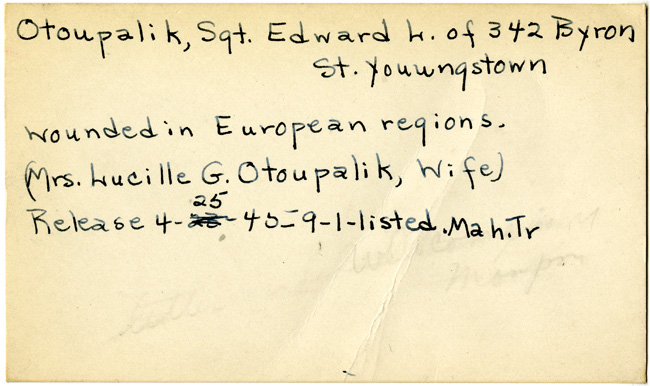 Otoupalik, Sgt. Edward L. of 342 Byron
St. Youwngstown
wounded in European regions.
(Mrs. Lucille G. Otoupalik, Wife)
Release 4-25-45-9-1-listed. Mah. Tr